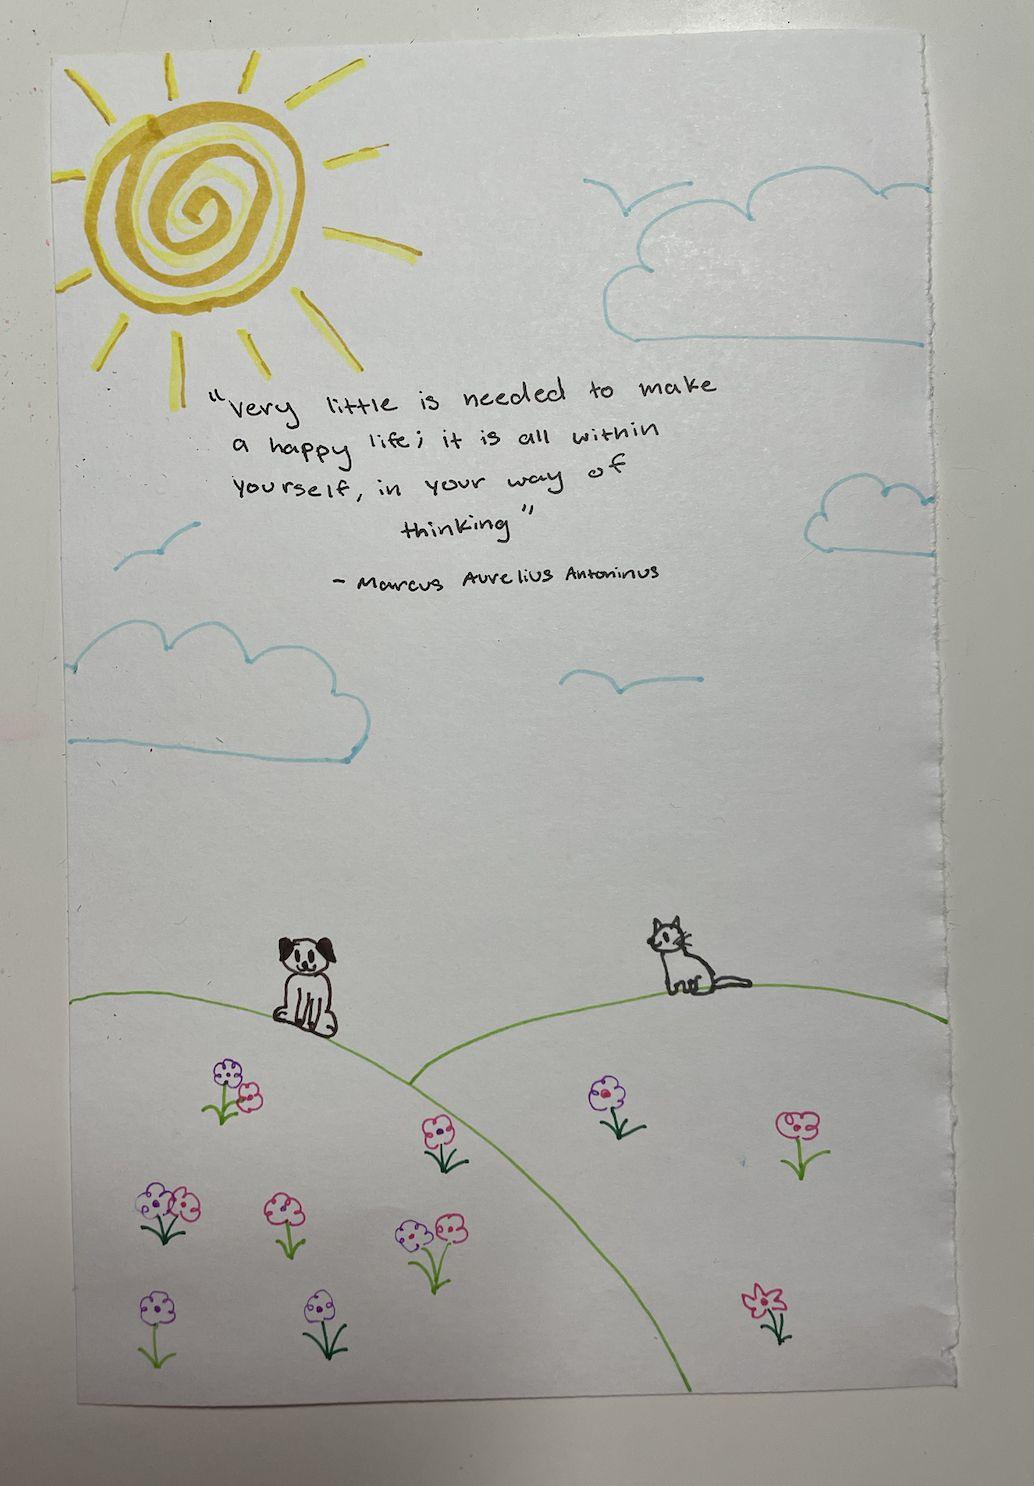 "Very little is needed to make
a happy life; it is all within
yourself, in your way of
thinking"
- Marcus Aurelius Antoninus